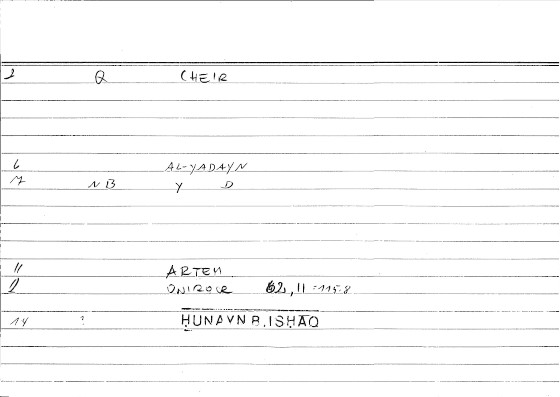 2 Q CHEIR
6 AL-YADAYN
7 NB Y D
11 ARTEM
12 ONIROCR 62, 11 = 115.8
14 ? ḤUNAYN B. ISḤAQ